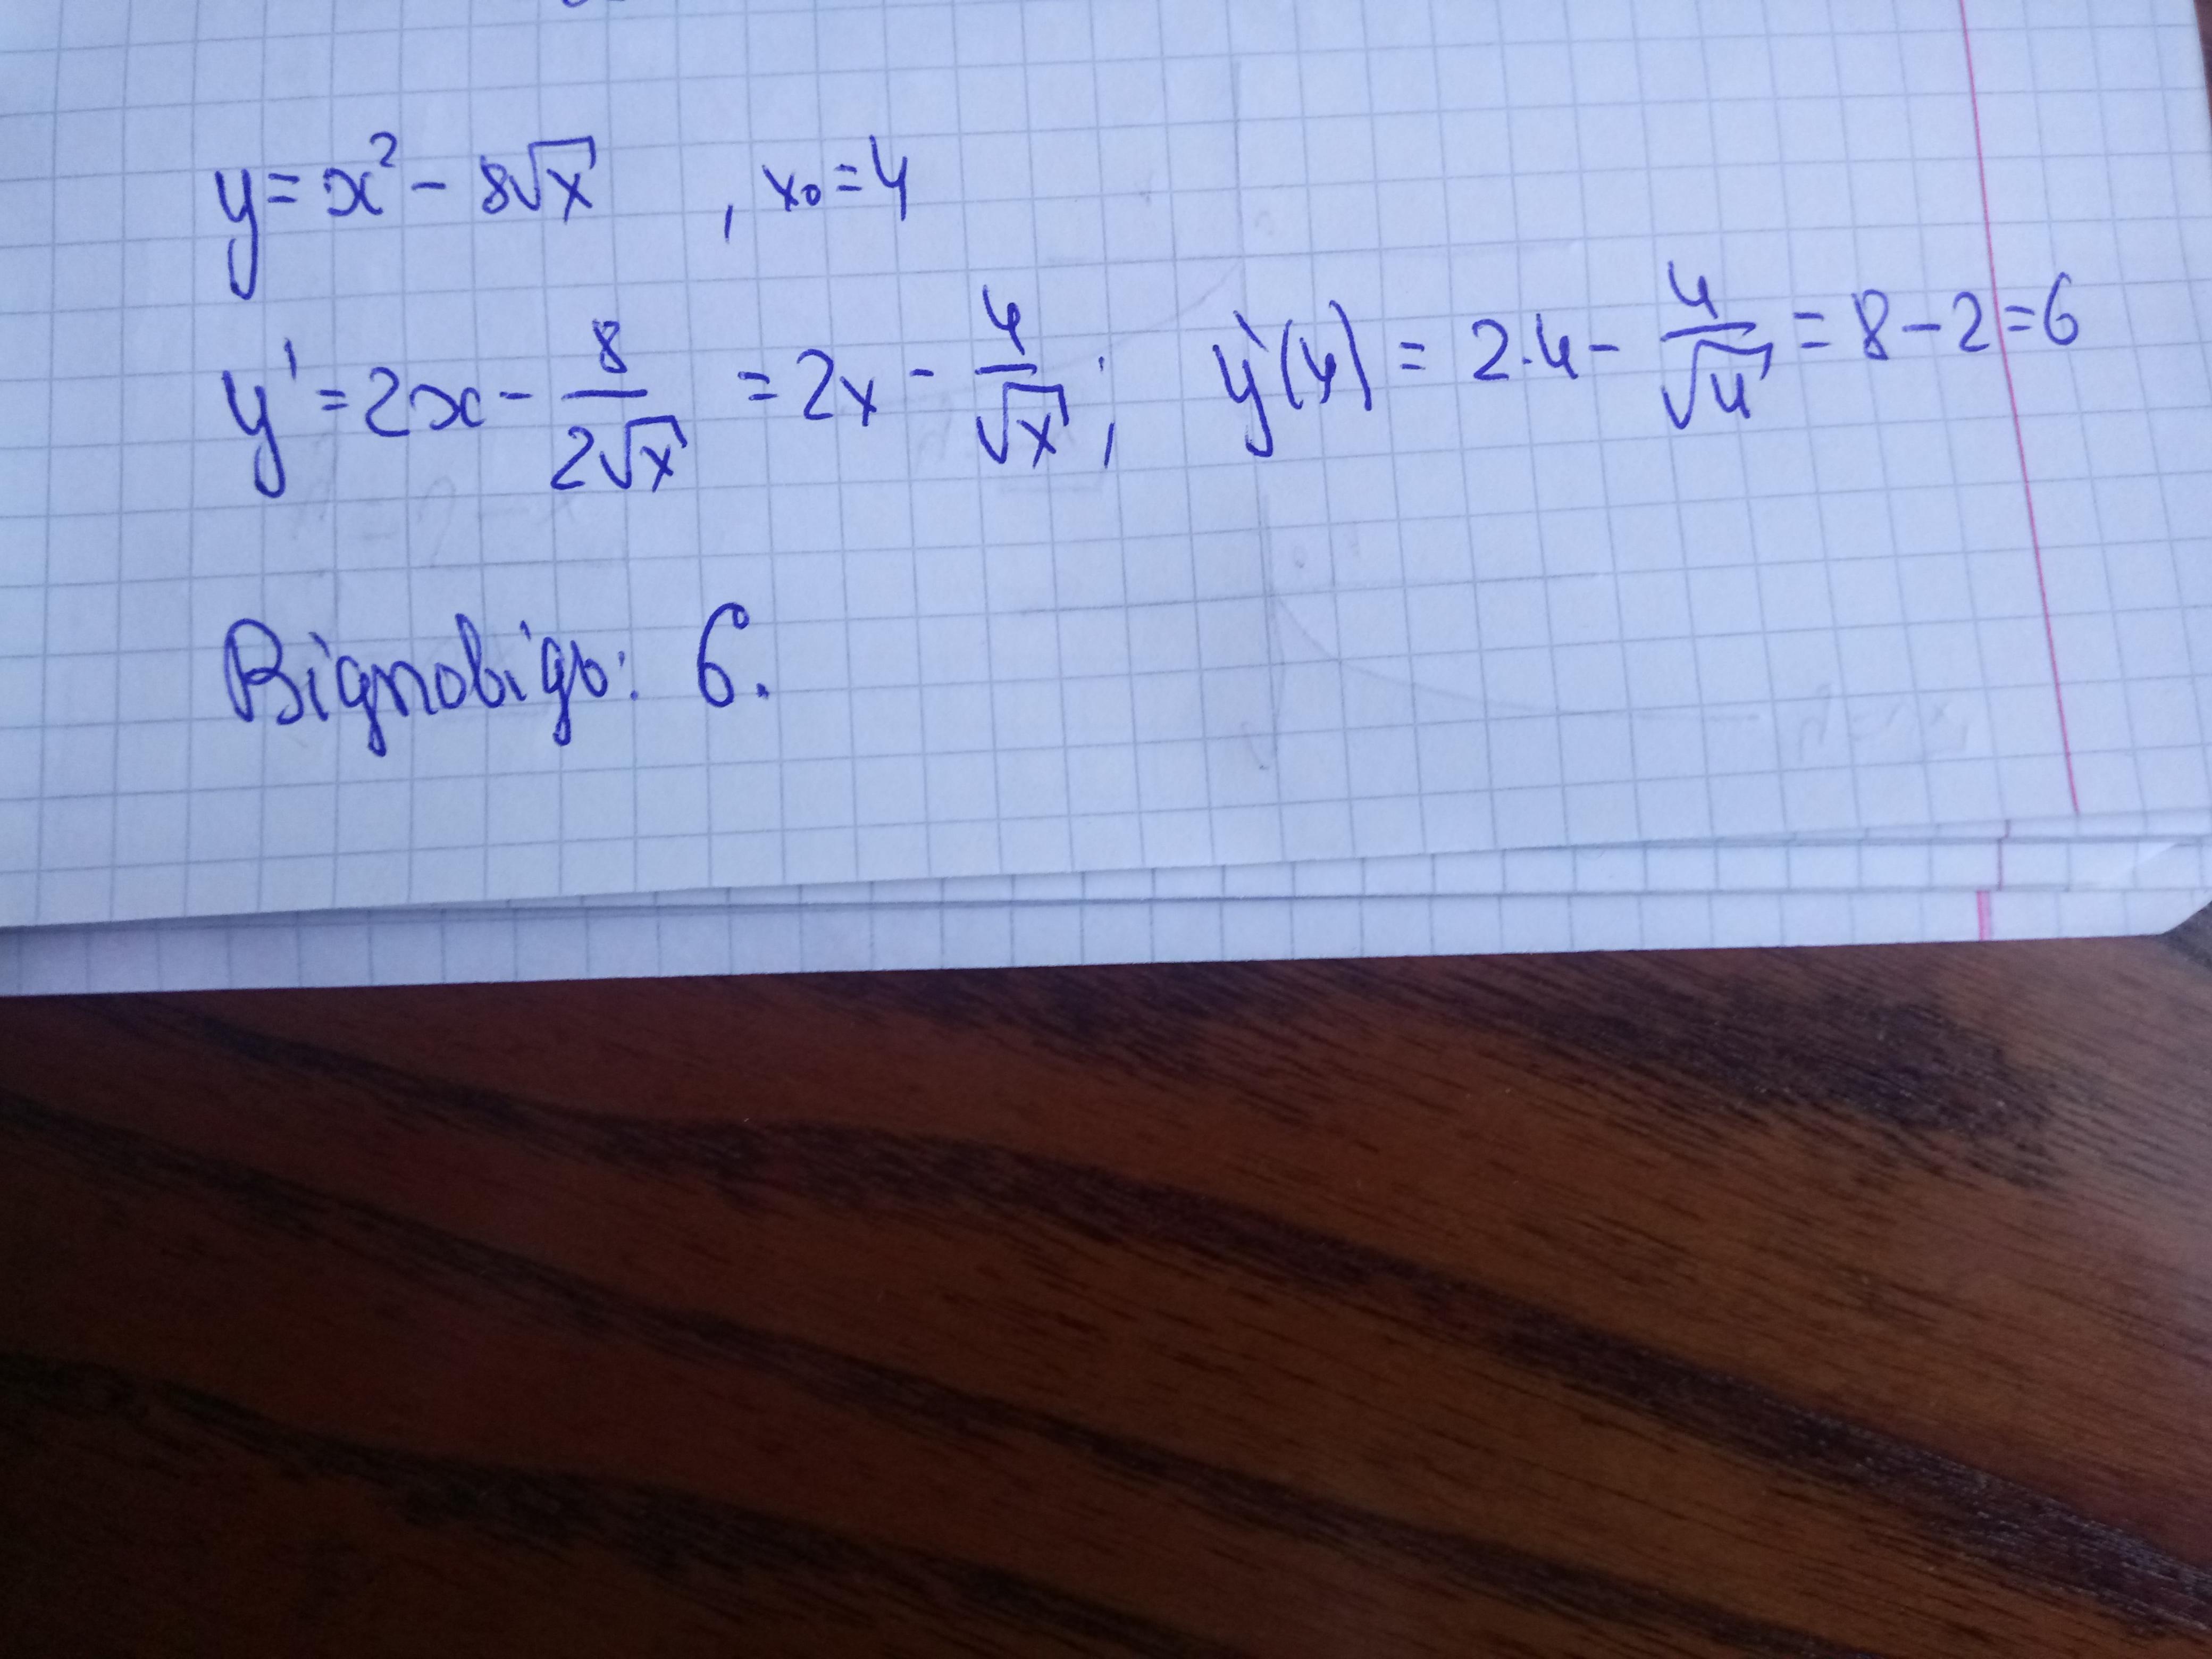 y = x² - 8√x , x₀ = 4
y' = 2x - 8/(2√x) = 2x - 4/√x ; y'(4) = 2·4 - 4/√4 = 8 - 2 = 6
Відповідь: 6.